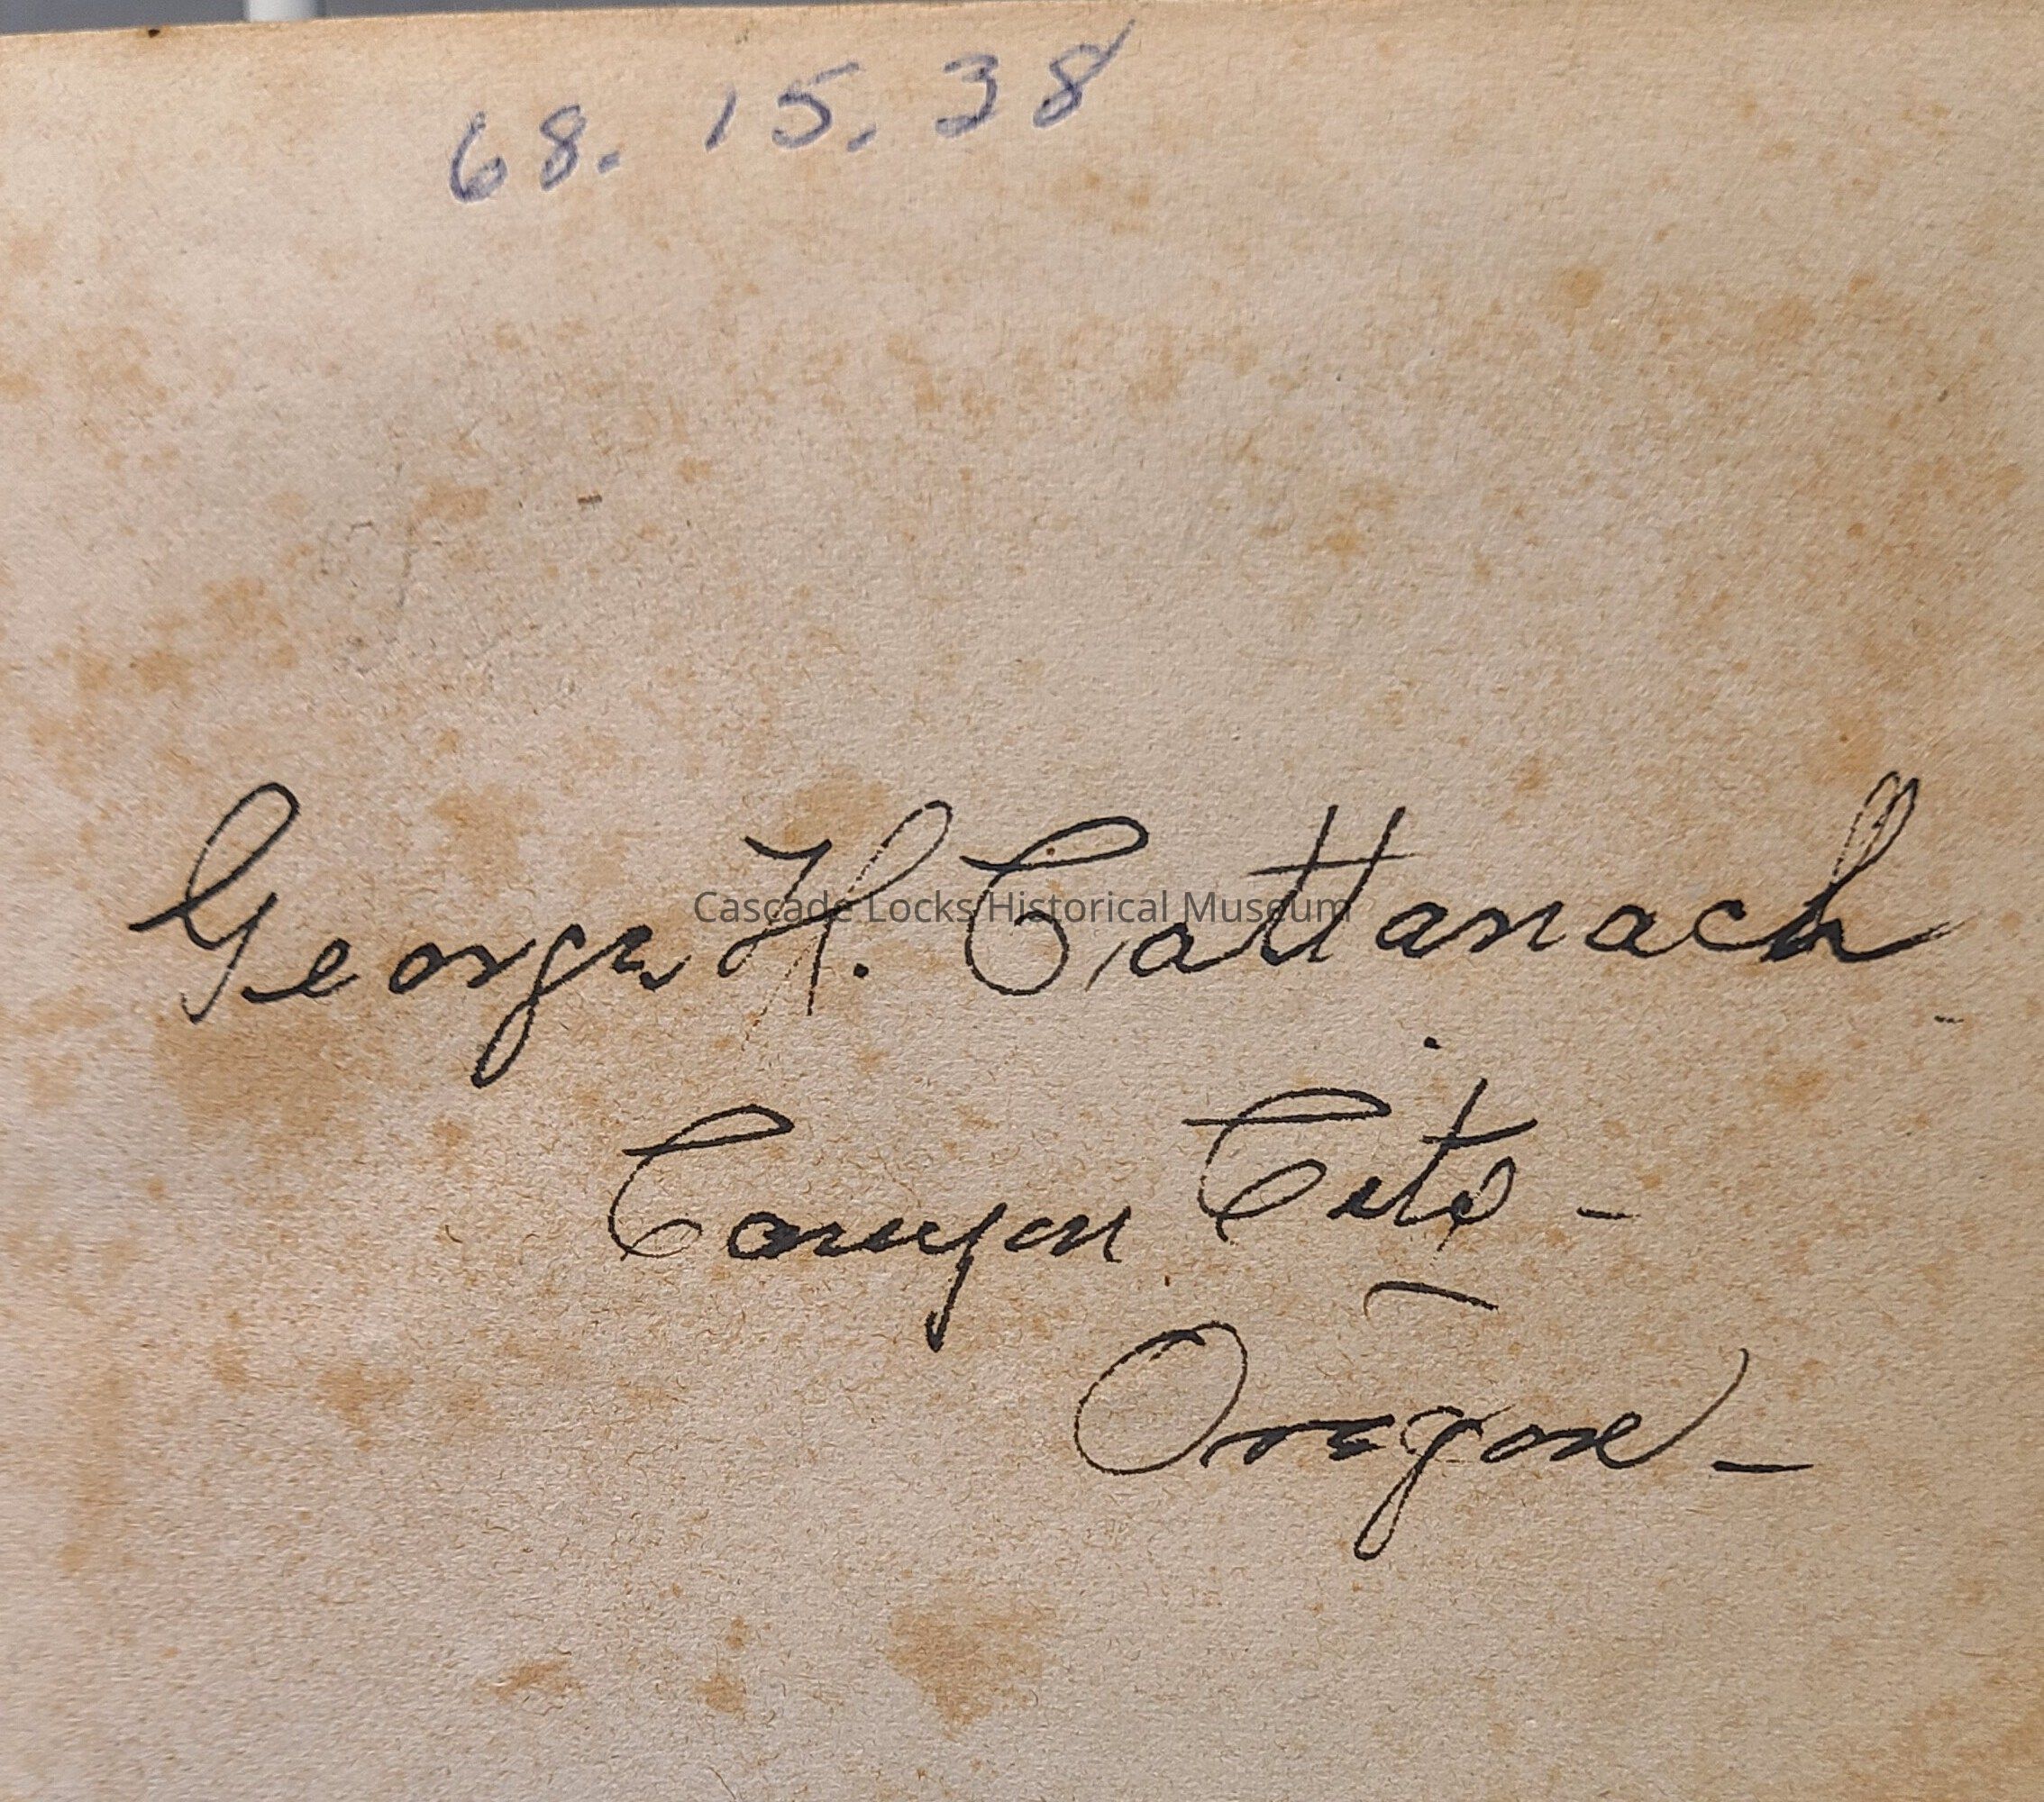 68. 15. 38
George H. Cattanach
Cascade Locks Historical Museum
Canyon City -
Oregon -